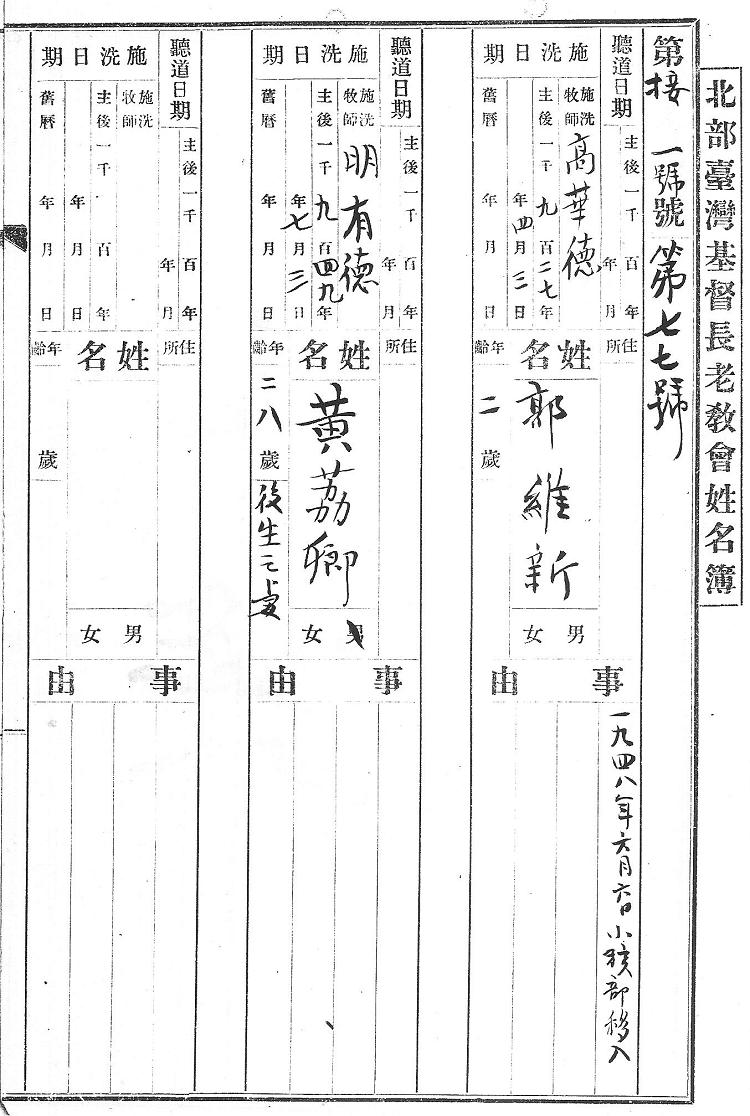 北部臺灣基督長老教會姓名簿
第接一號號第七七號
聽道日期
主後一千 百 年
年 月
住所
施洗日期
施洗牧師 高華德
主後一千九百二七年
年四月三日
舊曆 年 月 日
姓名
郭維新
男 女
年齡
二 歲
事由
一九四八年六月六日小孩部移入
聽道日期
主後一千 百 年
年 月
住所
施洗日期
施洗牧師 明有德
主後一千九百四九年
年七月三日
舊曆 年 月 日
姓名
黃荔卿
男 女
年齡
二八歲
後生之妻
事由
聽道日期
主後一千 百 年
年 月
住所
施洗日期
施洗牧師
主後一千 百 年
年 月 日
舊曆 年 月 日
姓名
男 女
年齡
歲
事由